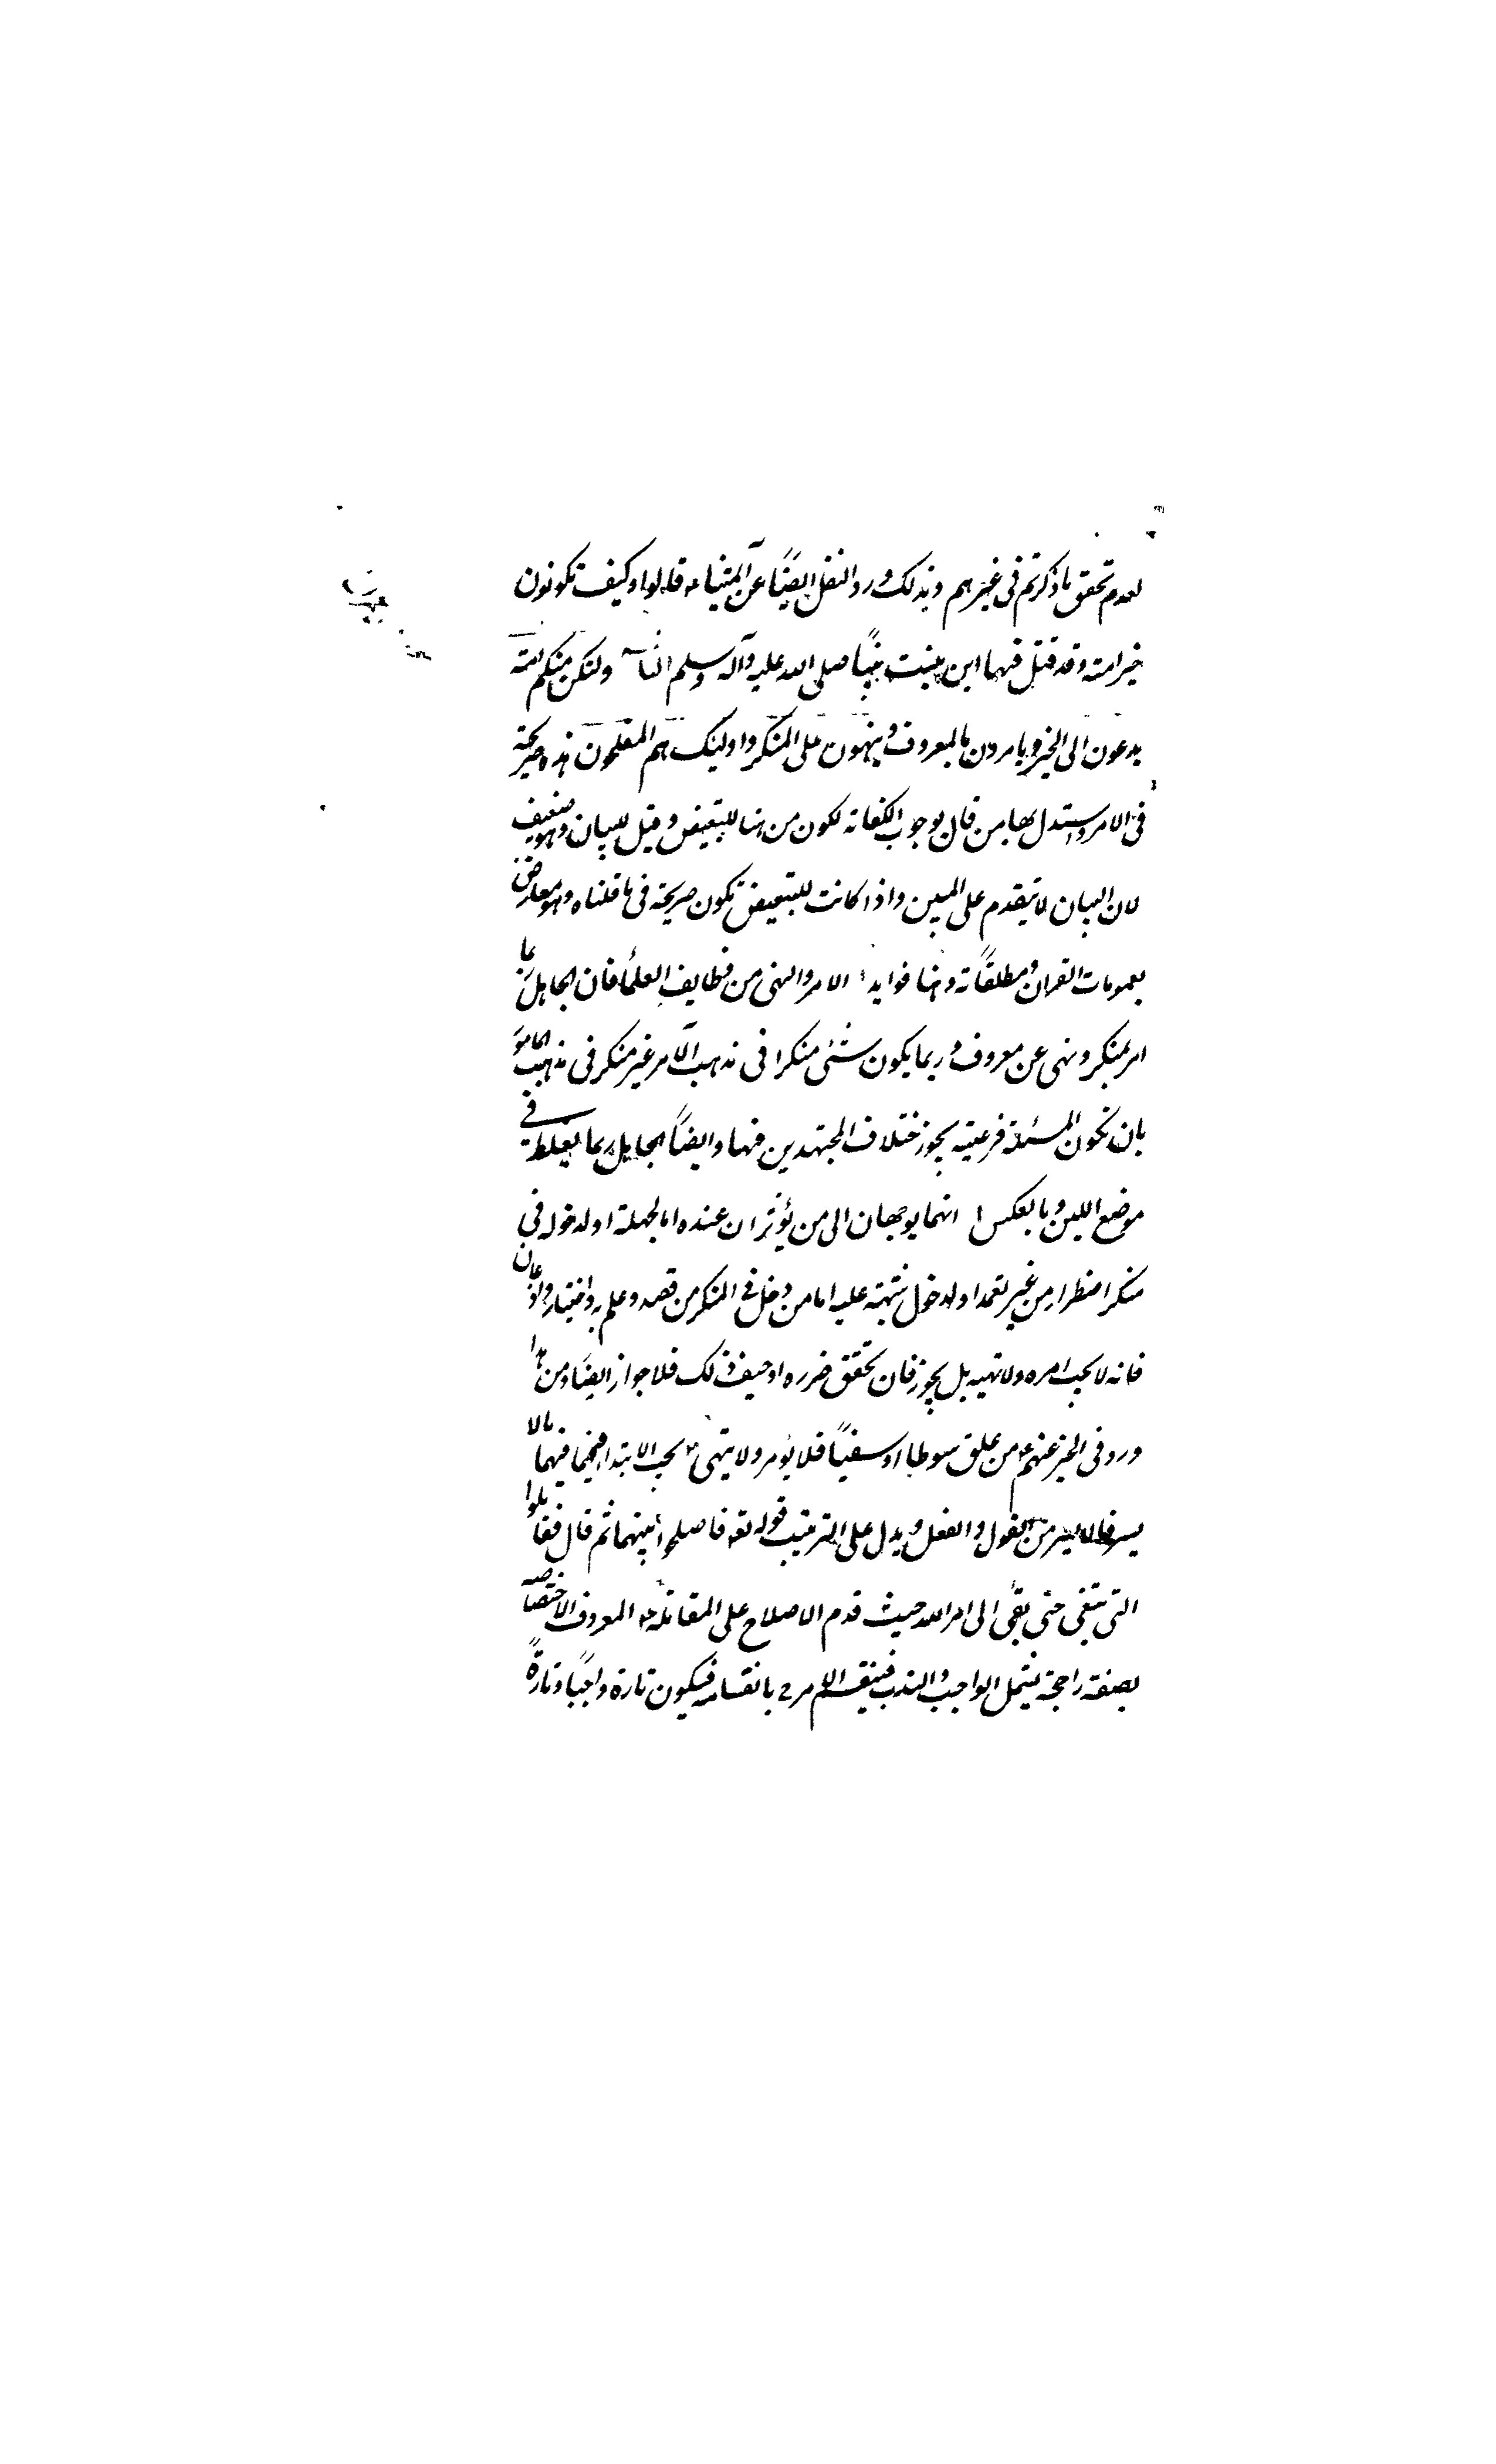 لعدم تحقق ما ذكرتم فى غيرهم وبذلك ورد النقل ايضًا عن ائمتنا ء قالوا وكيف تكونون
خير امته وقد قتل فيها ابن بنت نبيها صلى الله عليه وآله وسلم الثا ولتكن منكم امته
يدعون الى الخير ويامرون بالمعروف وينهون على المنكر واولئك هم المفلحون هذه صريحة
فى الامر واستدل بها من قال بوجوب الكفاته لكون من هنا للتبعيض وقيل للبيان وهو ضعيف
لان البيان لا يتقدم على المبين واذا كانت للتبعيض تكون صريحة فى ما قلناه وهو معارض
بعمومات القران ومطلقاته وهنا فوايد ا الامر والنهى من وظايف العلمأ فان الجاهل ربما
امر بمنكر ونهى عن معروف وربما يكون شئى منكرا فى مذهب الآمر غير منكر فى مذهب المامو
بان تكون المسئلة فرعيته يجوز ختلاف المجتهدين فيها وايضاً الجاهل ربما يغلط فى
موضع اللين وبالعكس انهما يوجهان الى من يؤثران عنده اما لجهله او لدخوله فى
منكر اضطرا من غير تعمد او لدخول شبهته عليه اما من دخل فى المنكر من قصد وعلم به واختيار واذعان
فانه لا يجب امره ولا نهيه بل يجوز فان تحقق ضرره او خيف ذلك فلا جواز ايضًا ومن هذا
ورد فى الخبر عنهم ء من علق سوطا او سفيًا فلا يؤمر ولا ينهى ٣ يجب الابتدا فيهما بالا
يسر فالايسر من القول والفعل ويدل على الترتيب قوله تعه فاصلحوا بينهما ثم قال فقاتلوا
التى تبغى حتى تفئ الى امر الله حيث قدم الاصلاح على المقاتلة ٤ المعروف لاختصاصه
بصفته راجحة يشمل الواجب والندب فينقسم الامر به بانقسامه فيكون تارة واجبًا وتارةً